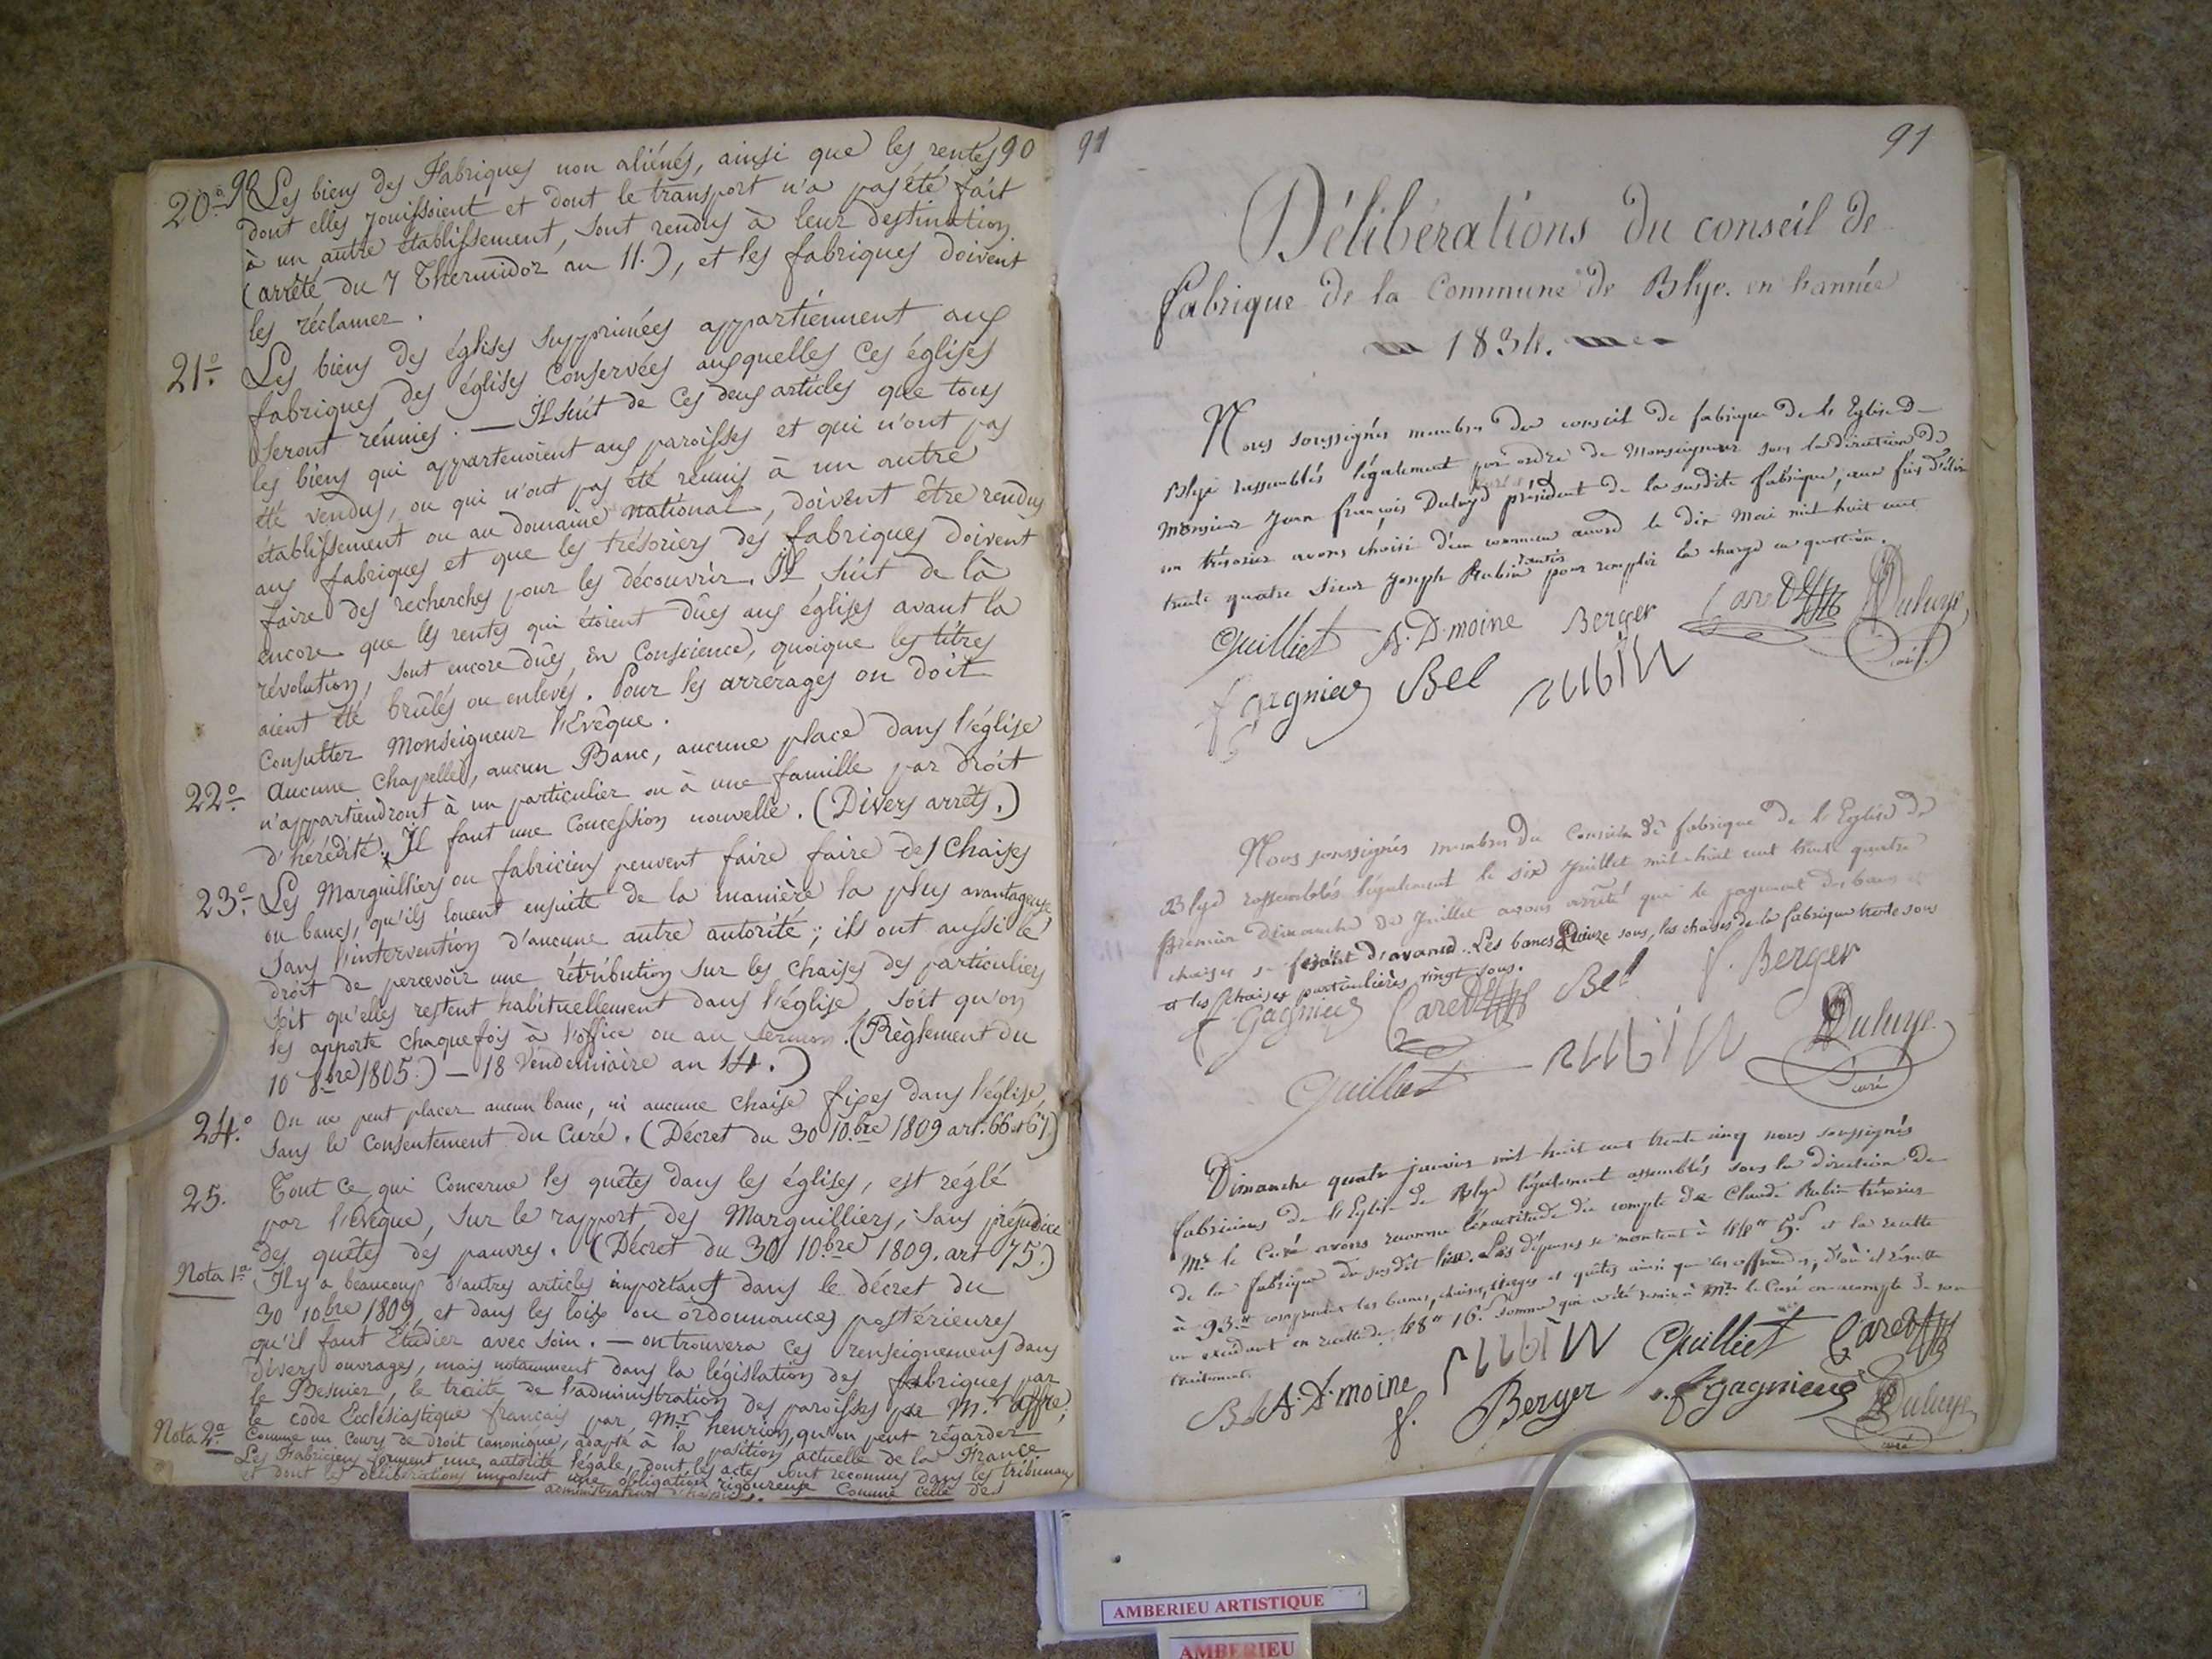 90 90
20° Les biens des Fabriques non aliénés, ainsi que les rentes
dont elles jouissoient et dont le transport n'a pas été fait
à un autre établissement, sont rendus à leur destination
(arrêté du 7 Thermidor an 11.), et les fabriques doivent
les réclamer.
21° Les biens des églises supprimées appartiennent aux
fabriques des églises conservées auxquelles ces églises
seront réunies. — Il suit de ces deux articles que tous
les biens qui appartenoient aux paroisses et qui n'ont pas
été vendus, ou qui n'ont pas été réunis à un autre
établissement ou au domaine national, doivent être rendus
aux fabriques et que les trésoriers des fabriques doivent
faire des recherches pour les découvrir. Il suit de là
encore que les rentes qui étoient dûes aux églises avant la
révolution, sont encore dûes, en conscience, quoique les titres
aient été brûlés ou enlevés. Pour les arrérages on doit
consulter Monseigneur l'Evêque.
22° Aucune chapelle, aucun Banc, aucune place dans l'église
n'appartiendront à un particulier ou à une famille par droit
d'hérédité. Il faut une concession nouvelle. (Divers arrêts.)
23° Les Marguilliers ou fabriciens peuvent faire faire des chaises
ou bancs, qu'ils louent ensuite de la manière la plus avantageuse
sans l'intervention d'aucune autre autorité; ils ont aussi le
droit de percevoir une rétribution sur les chaises des particuliers
soit qu'elles restent habituellement dans l'église, soit qu'on
les apporte chaque fois à l'office ou au sermon. (Règlement du
10 8.bre 1805.) — 18 Vendémiaire an 14.)
24.° On ne peut placer aucun banc, ni aucune chaise fixes dans l'église,
sans le consentement du Curé. (Décret du 30 10.bre 1809 art. 66 et 67)
25. Tout ce qui concerne les quêtes dans les églises, est réglé
par l'Evêque, sur le rapport des Marguilliers, sans préjudice
des quêtes des pauvres. (Décret du 30 10.bre 1809. art 75.)
Nota 1.a Il y a beaucoup d'autres articles important dans le décret du
30 10.bre 1809, et dans les loix ou ordonnances postérieures
qu'il faut Etudier avec soin. — on trouvera ces renseignemens dans
divers ouvrages, mais notamment dans la législation des fabriques par
le Besnier, le traité de l'administration des paroisses par M.r affre,
le code Ecclésiastique français par M.r henrion, qu'on peut regarder
Comme un cours de droit canonique, adapté à la position actuelle de la France.
Nota 2.a Les Fabriciens forment une autorité légale, dont les actes sont reconnus dans les tribunaux
et dont les délibérations imposent une obligation rigoureuse comme celle des
administrateurs
91 91
Délibérations du conseil de
fabrique de la Commune de Blye. en l'année
1834.
Nous soussignés membres du conseil de fabrique de l'Eglise de
Blye rassemblés légalement par ordre de Monseigneur sous la direction de
Monsieur Jean françois Duluye président de la susdite fabrique, aux fins d'élire
un trésorier avons choisi d'un commun accord le dix Mai mil huit cent
trente quatre Sieur Joseph Rubin pour remplir la charge en question.
Guilliet A. D. moine Berger Caret Duluye
curé.
f gagnieux Bel
Nous soussignés membres du Conseil de fabrique de l'Eglise de
Blye rassemblés légalement le six Juillet mil huit cent trente quatre
premier dimanche de Juillet avons arrêté que le payement des bancs et
chaises se feroient d'avance. Les bancs Quinze sous, les chaises de la fabrique trente sous
et les chaises particulières vingt sous.
f Gagnieux Caret Bel f. Berger
Guilliet Duluye
curé
Dimanche quatre janvier mil huit cent trente cinq nous soussignés
fabriciens de l'Eglise de Blye légalement assemblés sous la direction de
M.r le Curé avons reconnu l'exactitude du compte de Claude Rubin trésorier
de la fabrique du susdit lieu. Les dépenses se montent à 44tt 5.s et la recette
à 93.tt comprenant les bancs, chaises, cierges et quêtes ainsi que les offrandes, d'où il résulte
un excédant en recette de 48tt 16.s somme qui a été remise à M.r le Curé en acompte de son
traitement.
Guilliet Caret
Bel A. D. moine f. Berger f gagnieux Duluye
curé
AMBERIEU ARTISTIQUE
AMBERIEU